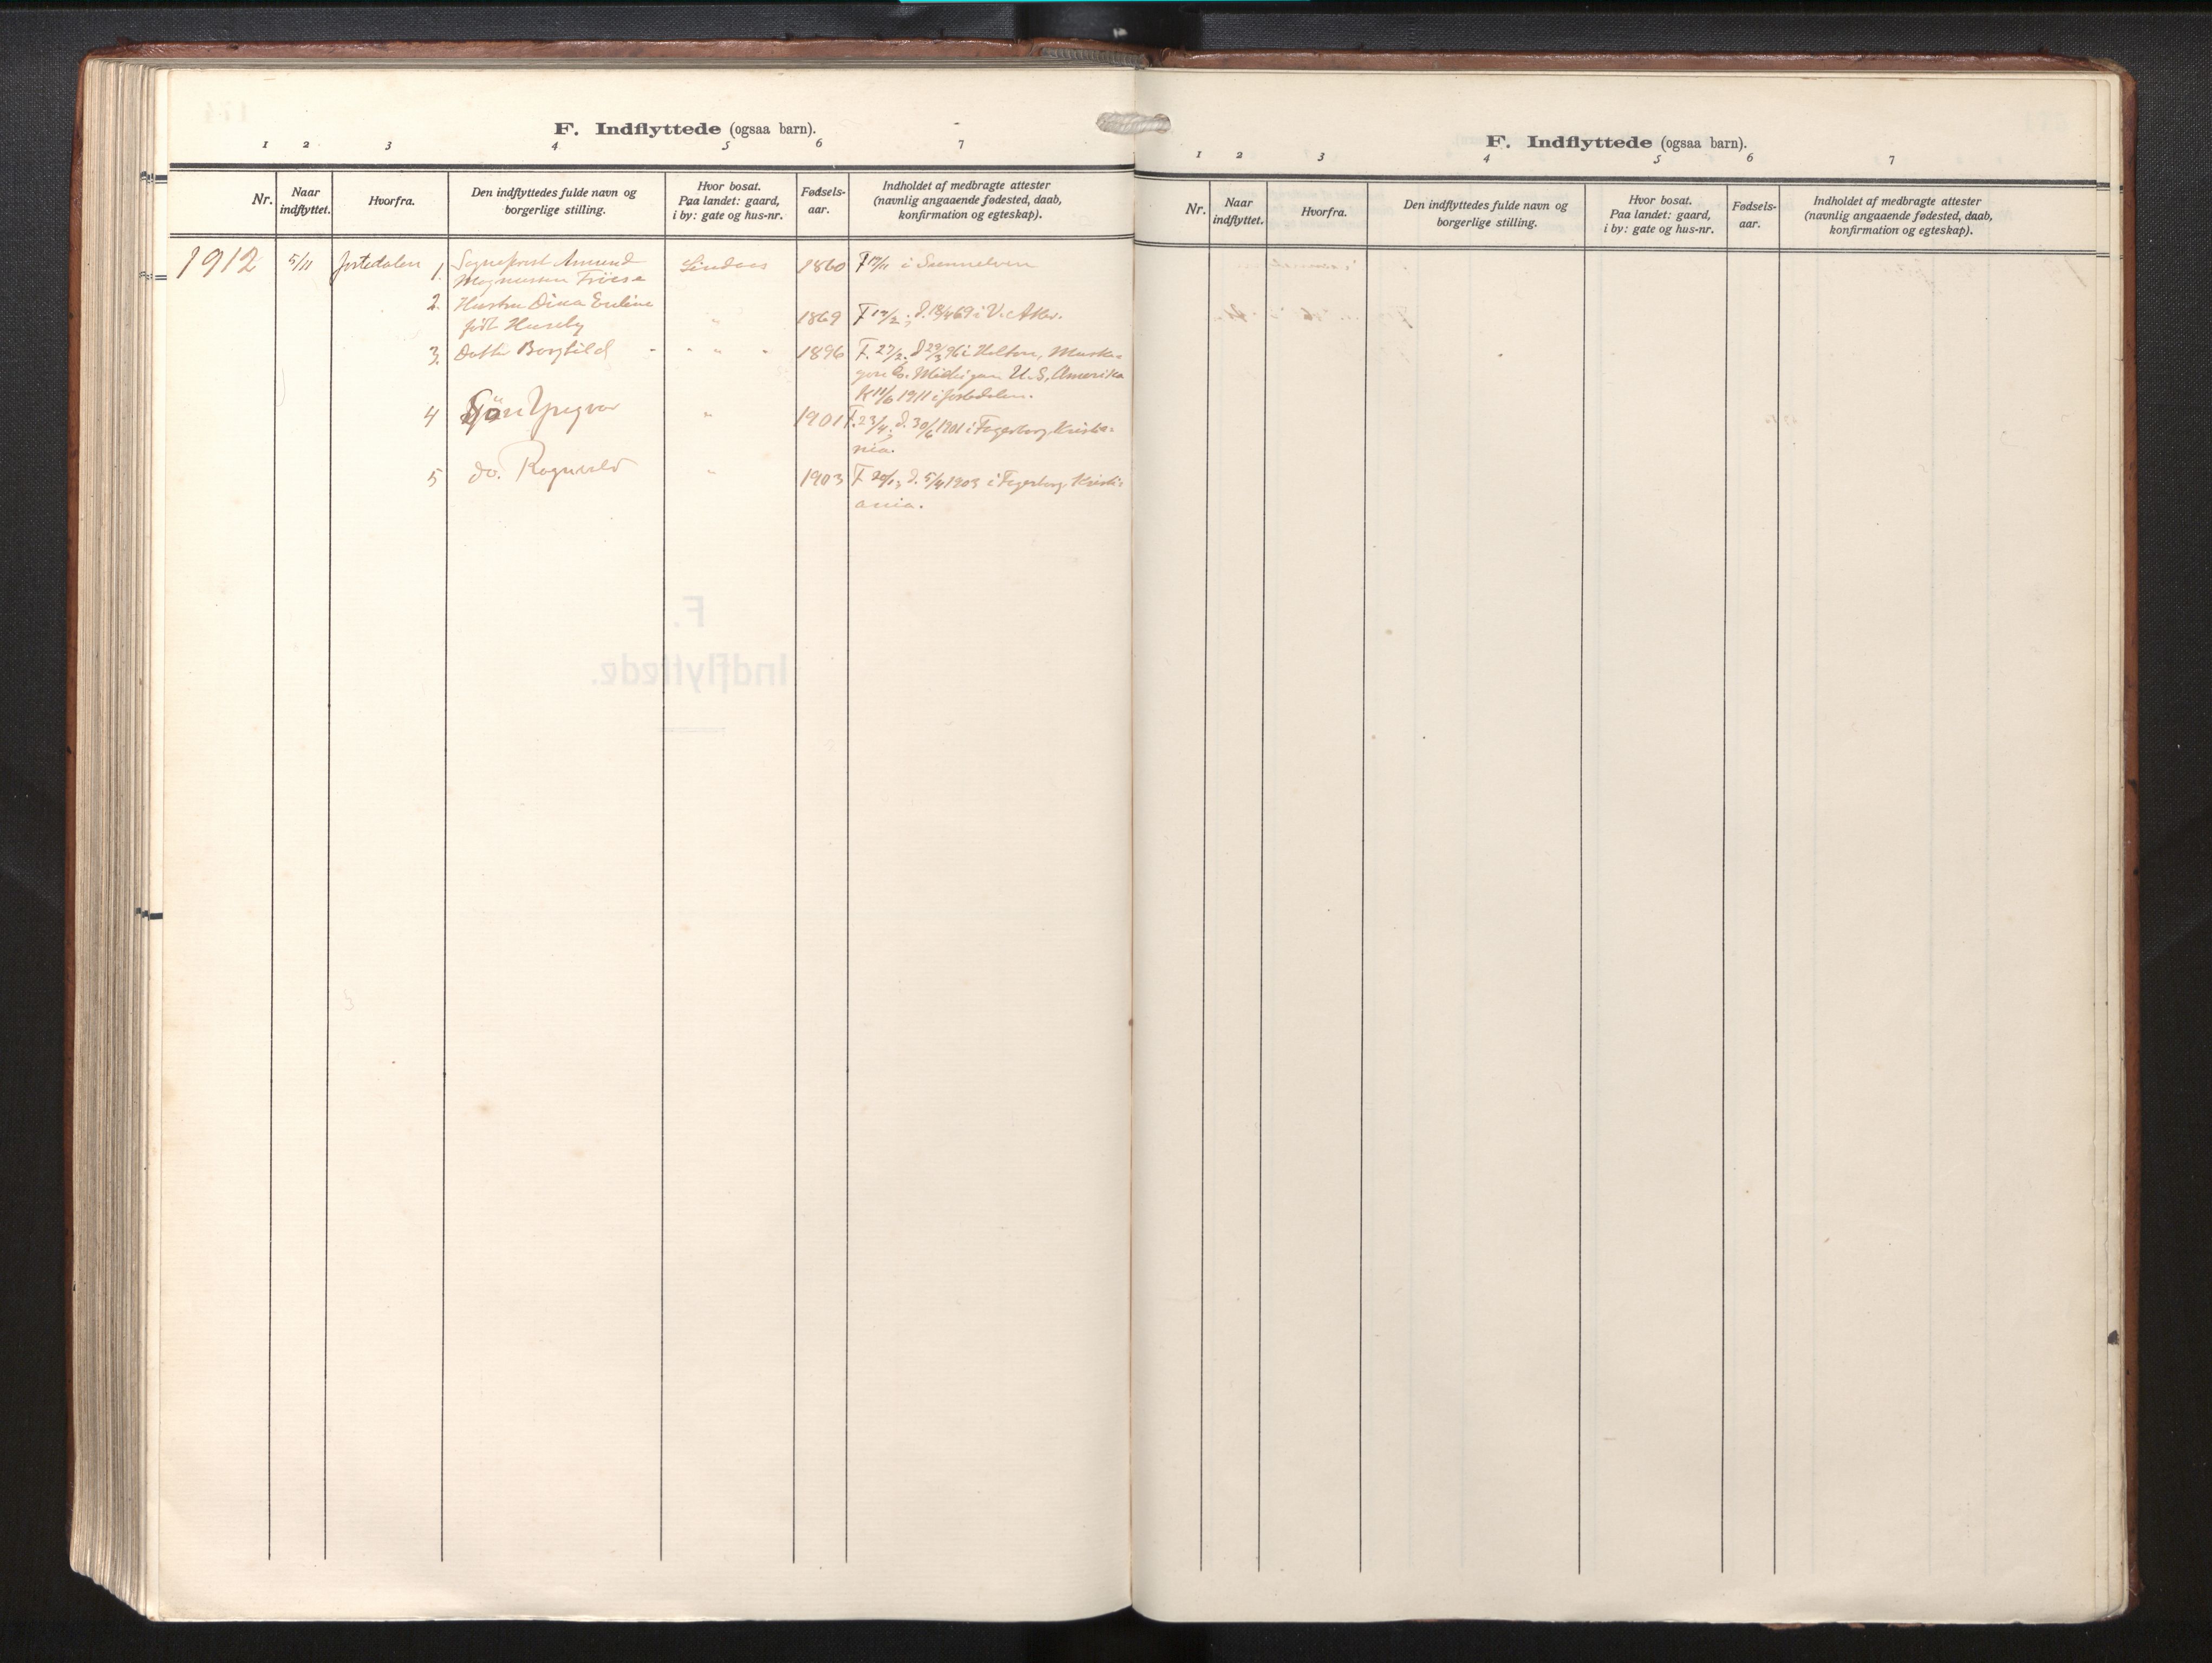 F. Indflyttede (ogsaa barn).
1 2 3 4 5 6 7
Nr. Naar indflyttet. Hvorfra. Den indflyttedes fulde navn og borgerlige stilling. Hvor bosat. Paa landet: gaard, i by: gate og hus-nr. Fødsels-aar. Indholdet af medbragte attester (navnlig angaaende fødested, daab, konfirmation og egteskap).
1912 5/11 Jostedalen 1. Sogneprest Amund Lindaas 1860 F 17/11 i Sunnelven
Magnussen Frøise
2. Hustru Dina Eveline
født Huseby " 1869 F 14/2; d. 18/4 69 i V. Aker.
3. Datter Borghild - " " " 1896 F. 27/2. d 29/3 96 i Holton, Muske=
gon Co. Michigan U.S. Amerika
K 11/6 1911 i Jostedalen.
4 Søn Yngvar " 1901 F. 23/4. d. 30/6 1901 i Fagerborg Kristia=
nia.
5 do. Ragnvald " 1903 F. d. 5/4 1903 i Fagerborg Kristi=
ania.
F. Indflyttede (ogsaa barn).
1 2 3 4 5 6 7
Nr. Naar indflyttet. Hvorfra. Den indflyttedes fulde navn og borgerlige stilling. Hvor bosat. Paa landet: gaard, i by: gate og hus-nr. Fødsels-aar. Indholdet af medbragte attester (navnlig angaaende fødested, daab, konfirmation og egteskap).